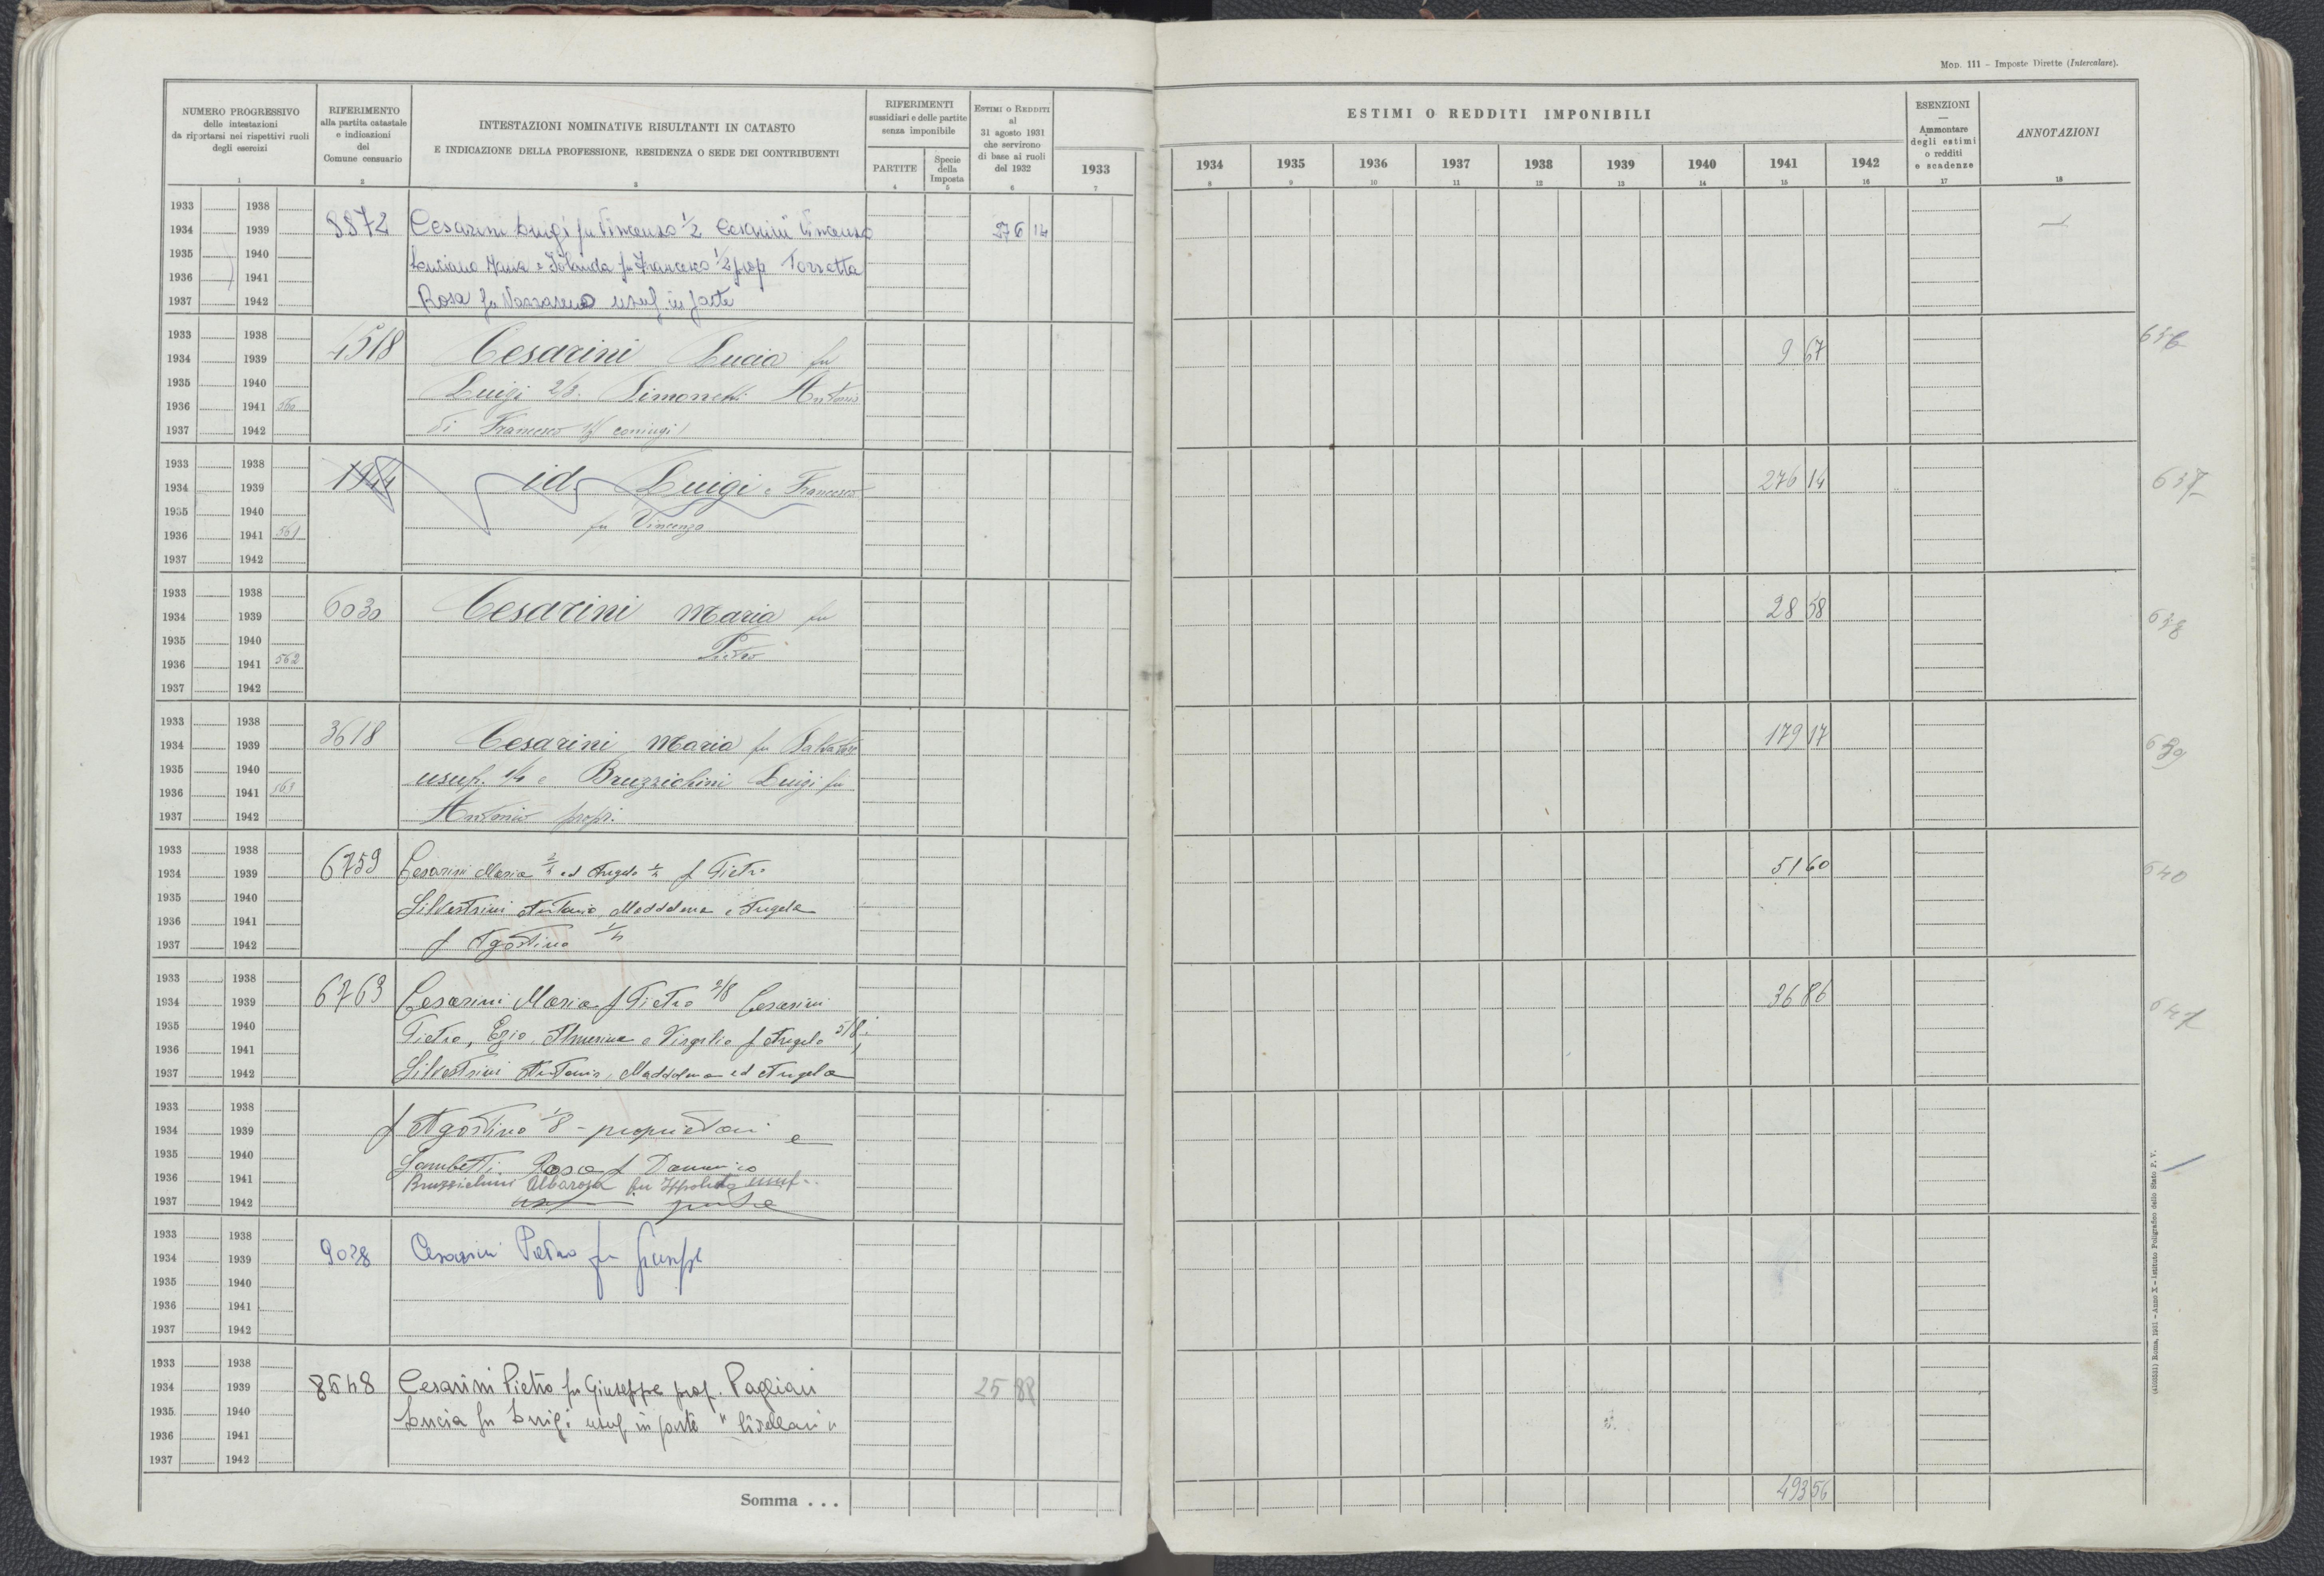 MOD. 111 – Imposte Dirette (Intercalare).
NUMERO PROGRESSIVO
delle intestazioni
da riportarsi nei rispettivi ruoli
degli esercizi
1
RIFERIMENTO
alla partita catastale
e indicazioni
del
Comune censuario
2
INTESTAZIONI NOMINATIVE RISULTANTI IN CATASTO
E INDICAZIONE DELLA PROFESSIONE, RESIDENZA O SEDE DEI CONTRIBUENTI
3
RIFERIMENTI
sussidiari e delle partite
senza imponibile
PARTITE
4
Specie
della
Imposta
5
ESTIMI O REDDITI
al
31 agosto 1931
che servirono
di base ai ruoli
del 1932
6
1933
7
ESTIMI O REDDITI IMPONIBILI
1934 1935 1936 1937 1938 1939 1940 1941 1942
8 9 10 11 12 13 14 15 16
ESENZIONI
—
Ammontare
degli estimi
o redditi
e scadenze
17
ANNOTAZIONI
18
1933 1938
1934 1939 8872 Cesarini Luigi fu Vincenzo 1/2 Cesarini Vincenzo 276 14
1935 1940 Luciano Maria e Iolanda fu Francesco 1/2 prop Torretta
1936 1941
1937 1942 Rosa fu Nazzareno usuf. in parte
1933 1938
1934 1939 4518 Cesarini Lucia fu 9 67 636
1935 1940 Luigi 2/3. Simonetti Antonio
1936 1941 560
1937 1942 di Francesco 1/3 (coniugi)
1933 1938
1934 1939 1944 id. Luigi e Francesco 276 14 637
1935 1940 fu Vincenzo
1936 1941 561
1937 1942
1933 1938
1934 1939 6030 Cesarini Maria fu 28 58 638
1935 1940 Pietro
1936 1941 562
1937 1942
1933 1938
1934 1939 3618 Cesarini Maria fu Salvatore 179 17 639
1935 1940 usuf. 1/4 e Bruzzichini Luigi fu
1936 1941 563
1937 1942 Antonio propr.
1933 1938
1934 1939 6759 Cesarini Maria ed Angelo f Pietro 51 60 640
1935 1940 Silvestrini Antonio, Maddalena e Angela
1936 1941
1937 1942 f Agostino
1933 1938
1934 1939 6763 Cesarini Maria f Pietro 2/8 Cesarini 36 86
1935 1940 Pietro, Ezio, Almerina e Virgilio f Angelo 5/8;
1936 1941
1937 1942 Silvestrini Antonio, Maddalena ed Angela
1933 1938
1934 1939 f Agostino 1/8 - proprietari e
1935 1940 Lambetti Rosa f Domenico
1936 1941 Bruzzichini Albarosa fu Ippolito usuf.
1937 1942 usuf parte
1933 1938
1934 1939 9028 Cesarini Pietro fu Giuseppe
1935 1940
1936 1941
1937 1942
1933 1938
1934 1939 8548 Cesarini Pietro fu Giuseppe prop. Pagliari 25 88
1935 1940 Lucia fu Luigi usuf in parte " livellari "
1936 1941
1937 1942
Somma . . . 493 56
(4103531) Roma, 1931 – Anno X – Istituto Poligrafico dello Stato P. V.